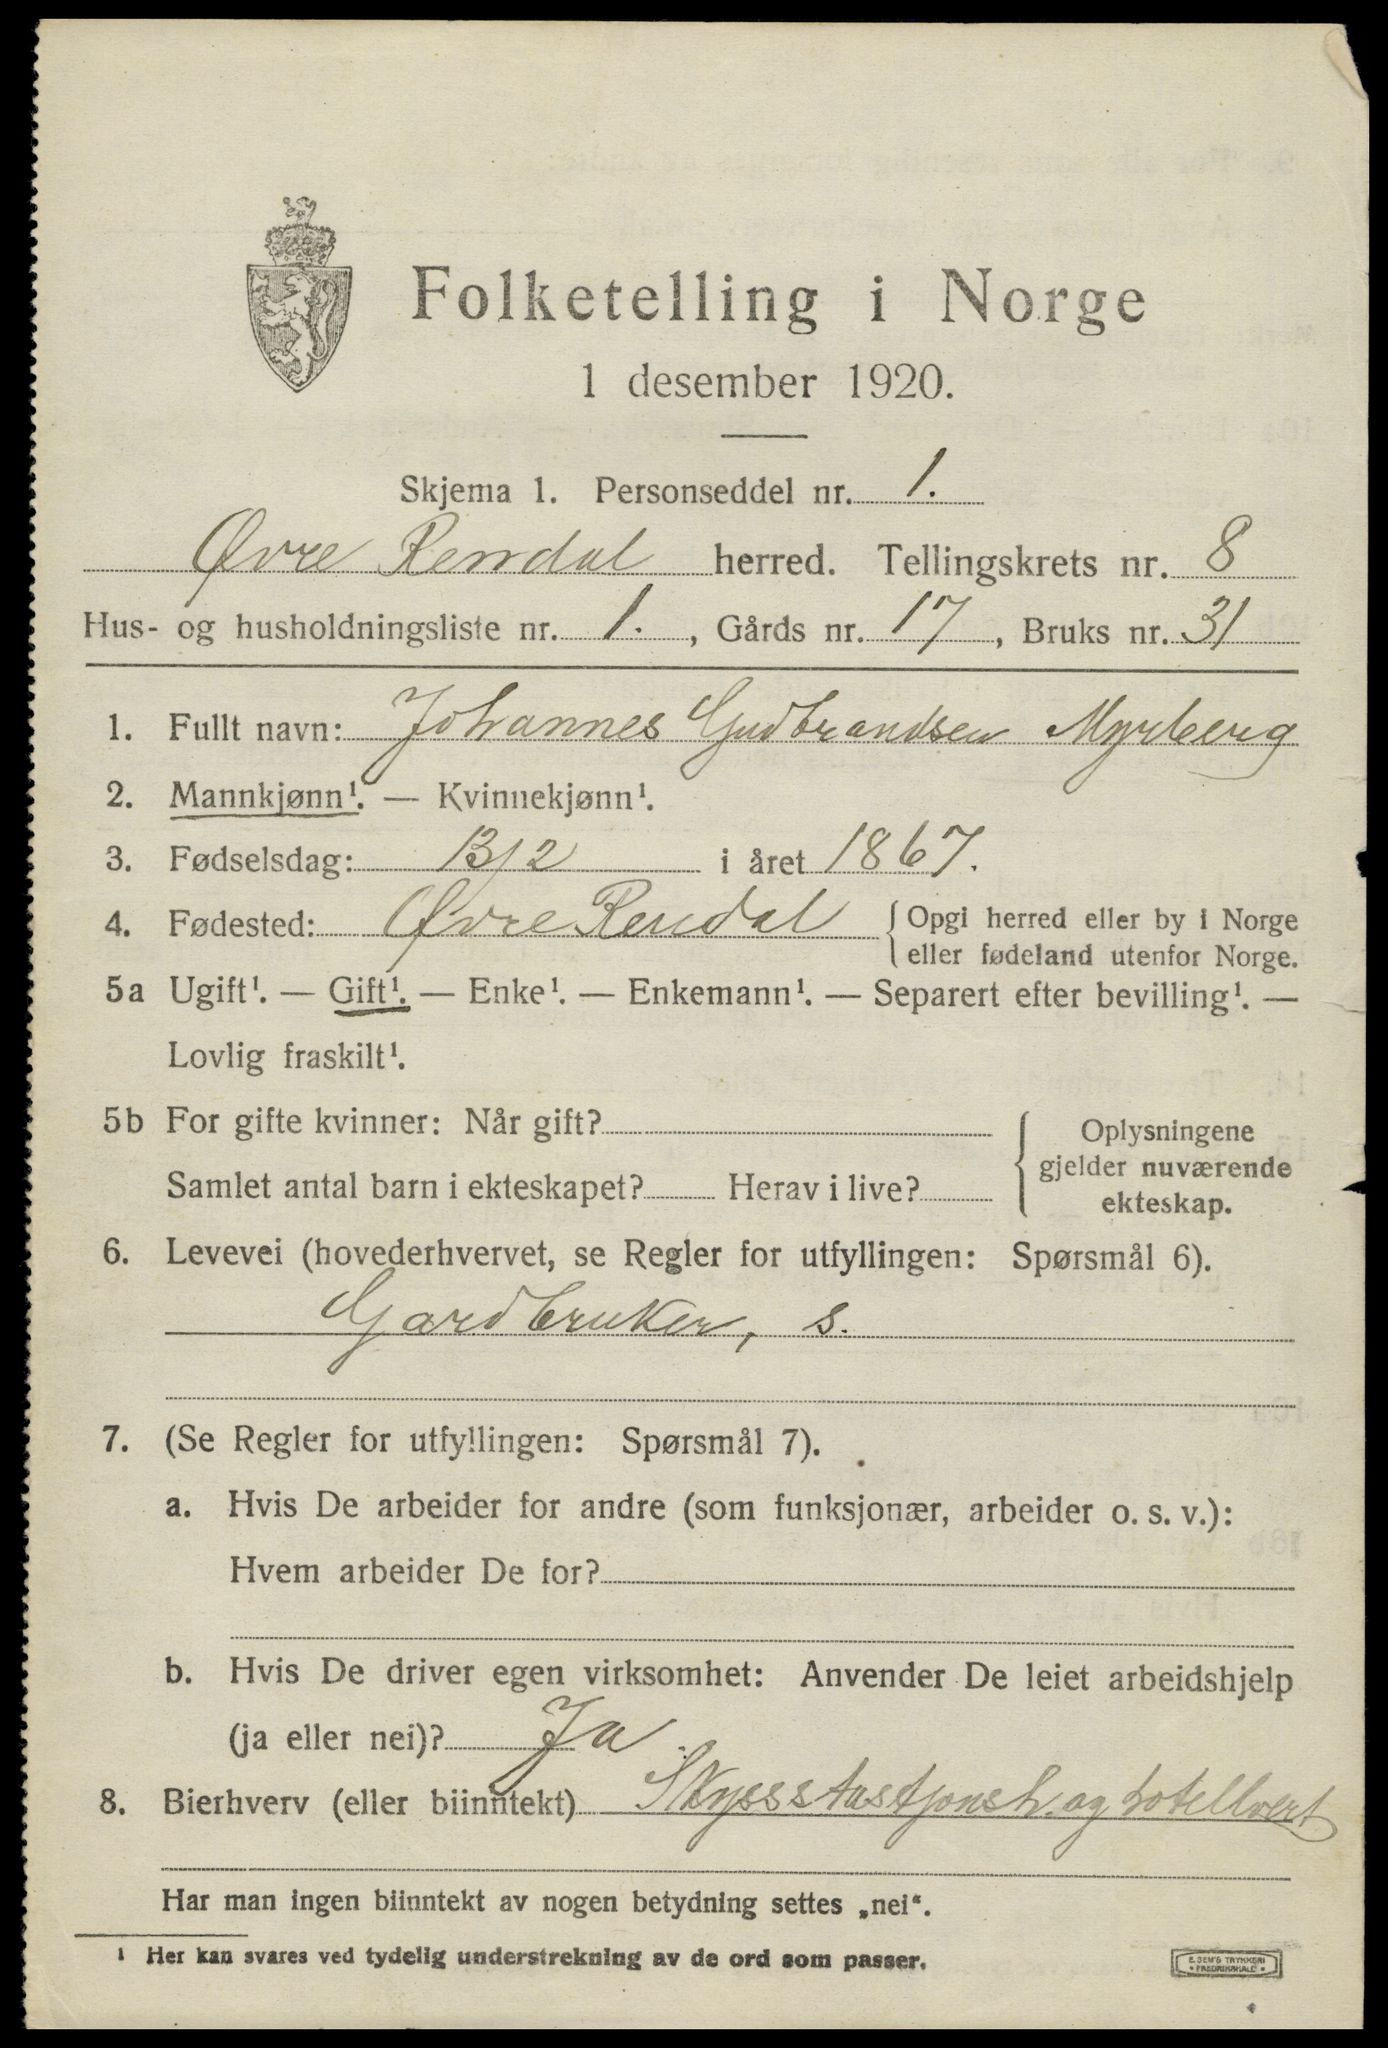 Folketelling i Norge
1 desember 1920.
Skjema 1. Personseddel nr. 1.
Øvre Rendal herred. Tellingskrets nr. 8
Hus- og husholdningsliste nr. 1., Gårds nr. 17, Bruks nr. 31
1. Fullt navn: Johannes Gudbrandsen Myrberg
2. Mannkjønn¹. — Kvinnekjønn¹.
3. Fødselsdag: 13/2 i året 1867.
4. Fødested: Øvre Rendal { Opgi herred eller by i Norge
eller fødeland utenfor Norge.
5a Ugift¹. — Gift¹. — Enke¹. — Enkemann¹. — Separert efter bevilling¹. —
Lovlig fraskilt¹.
5b For gifte kvinner: Når gift?
Samlet antal barn i ekteskapet? Herav i live?
Oplysningene
gjelder nuværende
ekteskap.
6. Levevei (hovederhvervet, se Regler for utfyllingen: Spørsmål 6).
Gardbruker, s.
7. (Se Regler for utfyllingen: Spørsmål 7).
a. Hvis De arbeider for andre (som funksjonær, arbeider o. s. v.):
Hvem arbeider De for?
b. Hvis De driver egen virksomhet: Anvender De leiet arbeidshjelp
(ja eller nei)? Ja.
8. Bierhverv (eller biinntekt) Skyssstastjonsh. og hotellvert
Har man ingen biinntekt av nogen betydning settes „nei“.
¹ Her kan svares ved tydelig understrekning av de ord som passer.
E. SEM'S TRYKKERI
FREDRIKSHALD